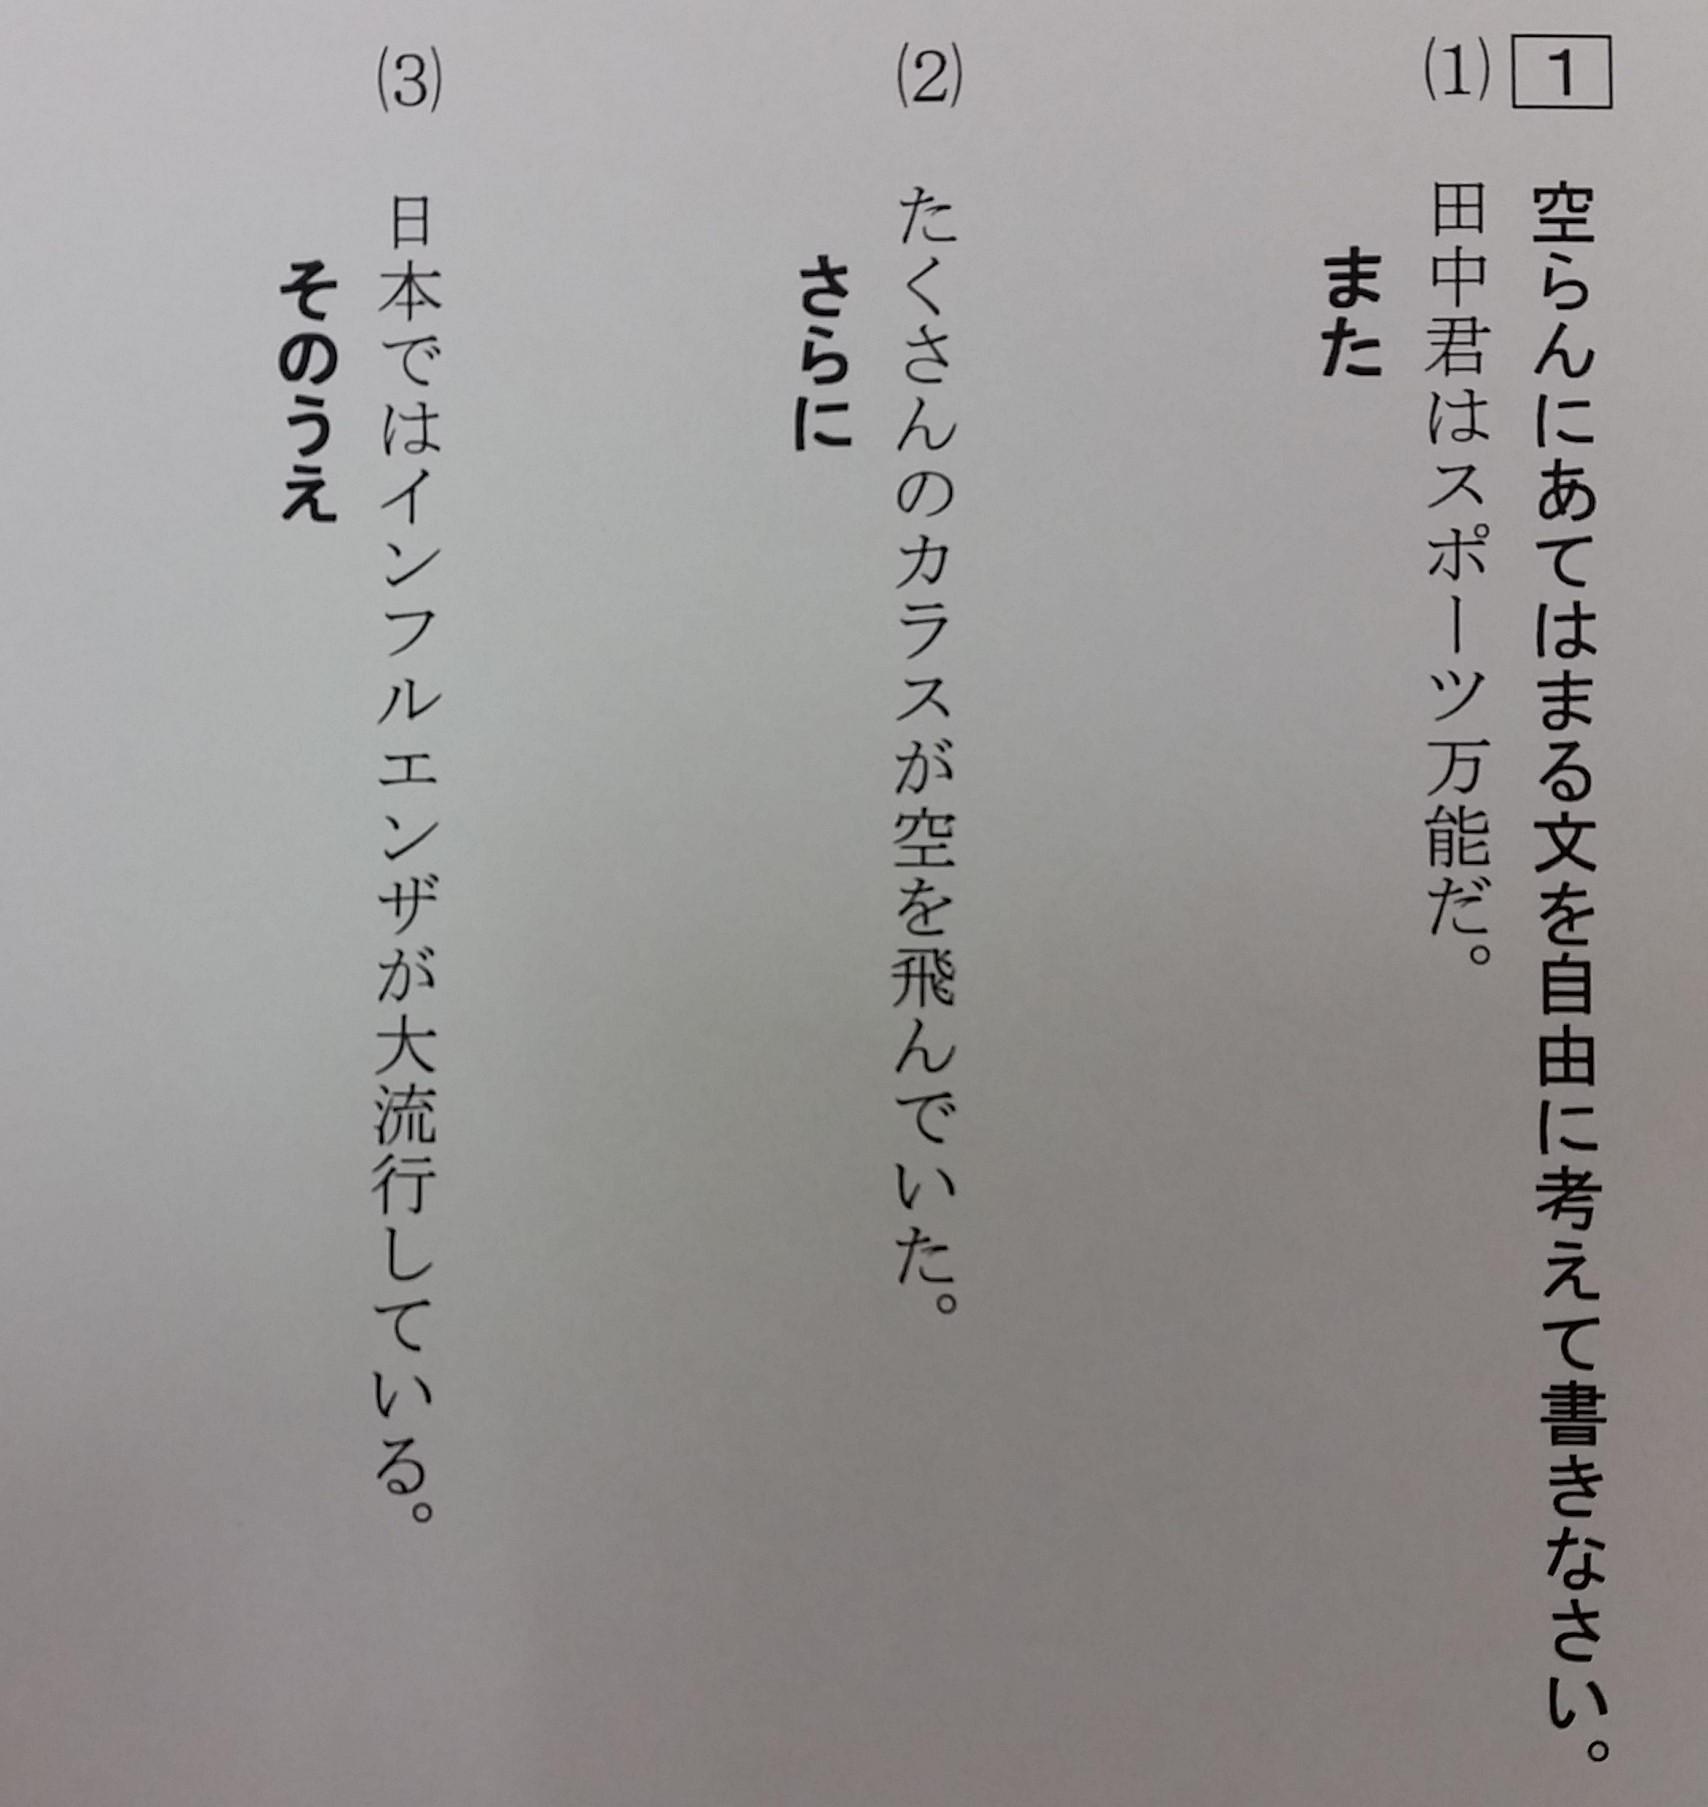 1 空らんにあてはまる文を自由に考えて書きなさい。
(1) 田中君はスポーツ万能だ。
また
(2) たくさんのカラスが空を飛んでいた。
さらに
(3) 日本ではインフルエンザが大流行している。
そのうえ